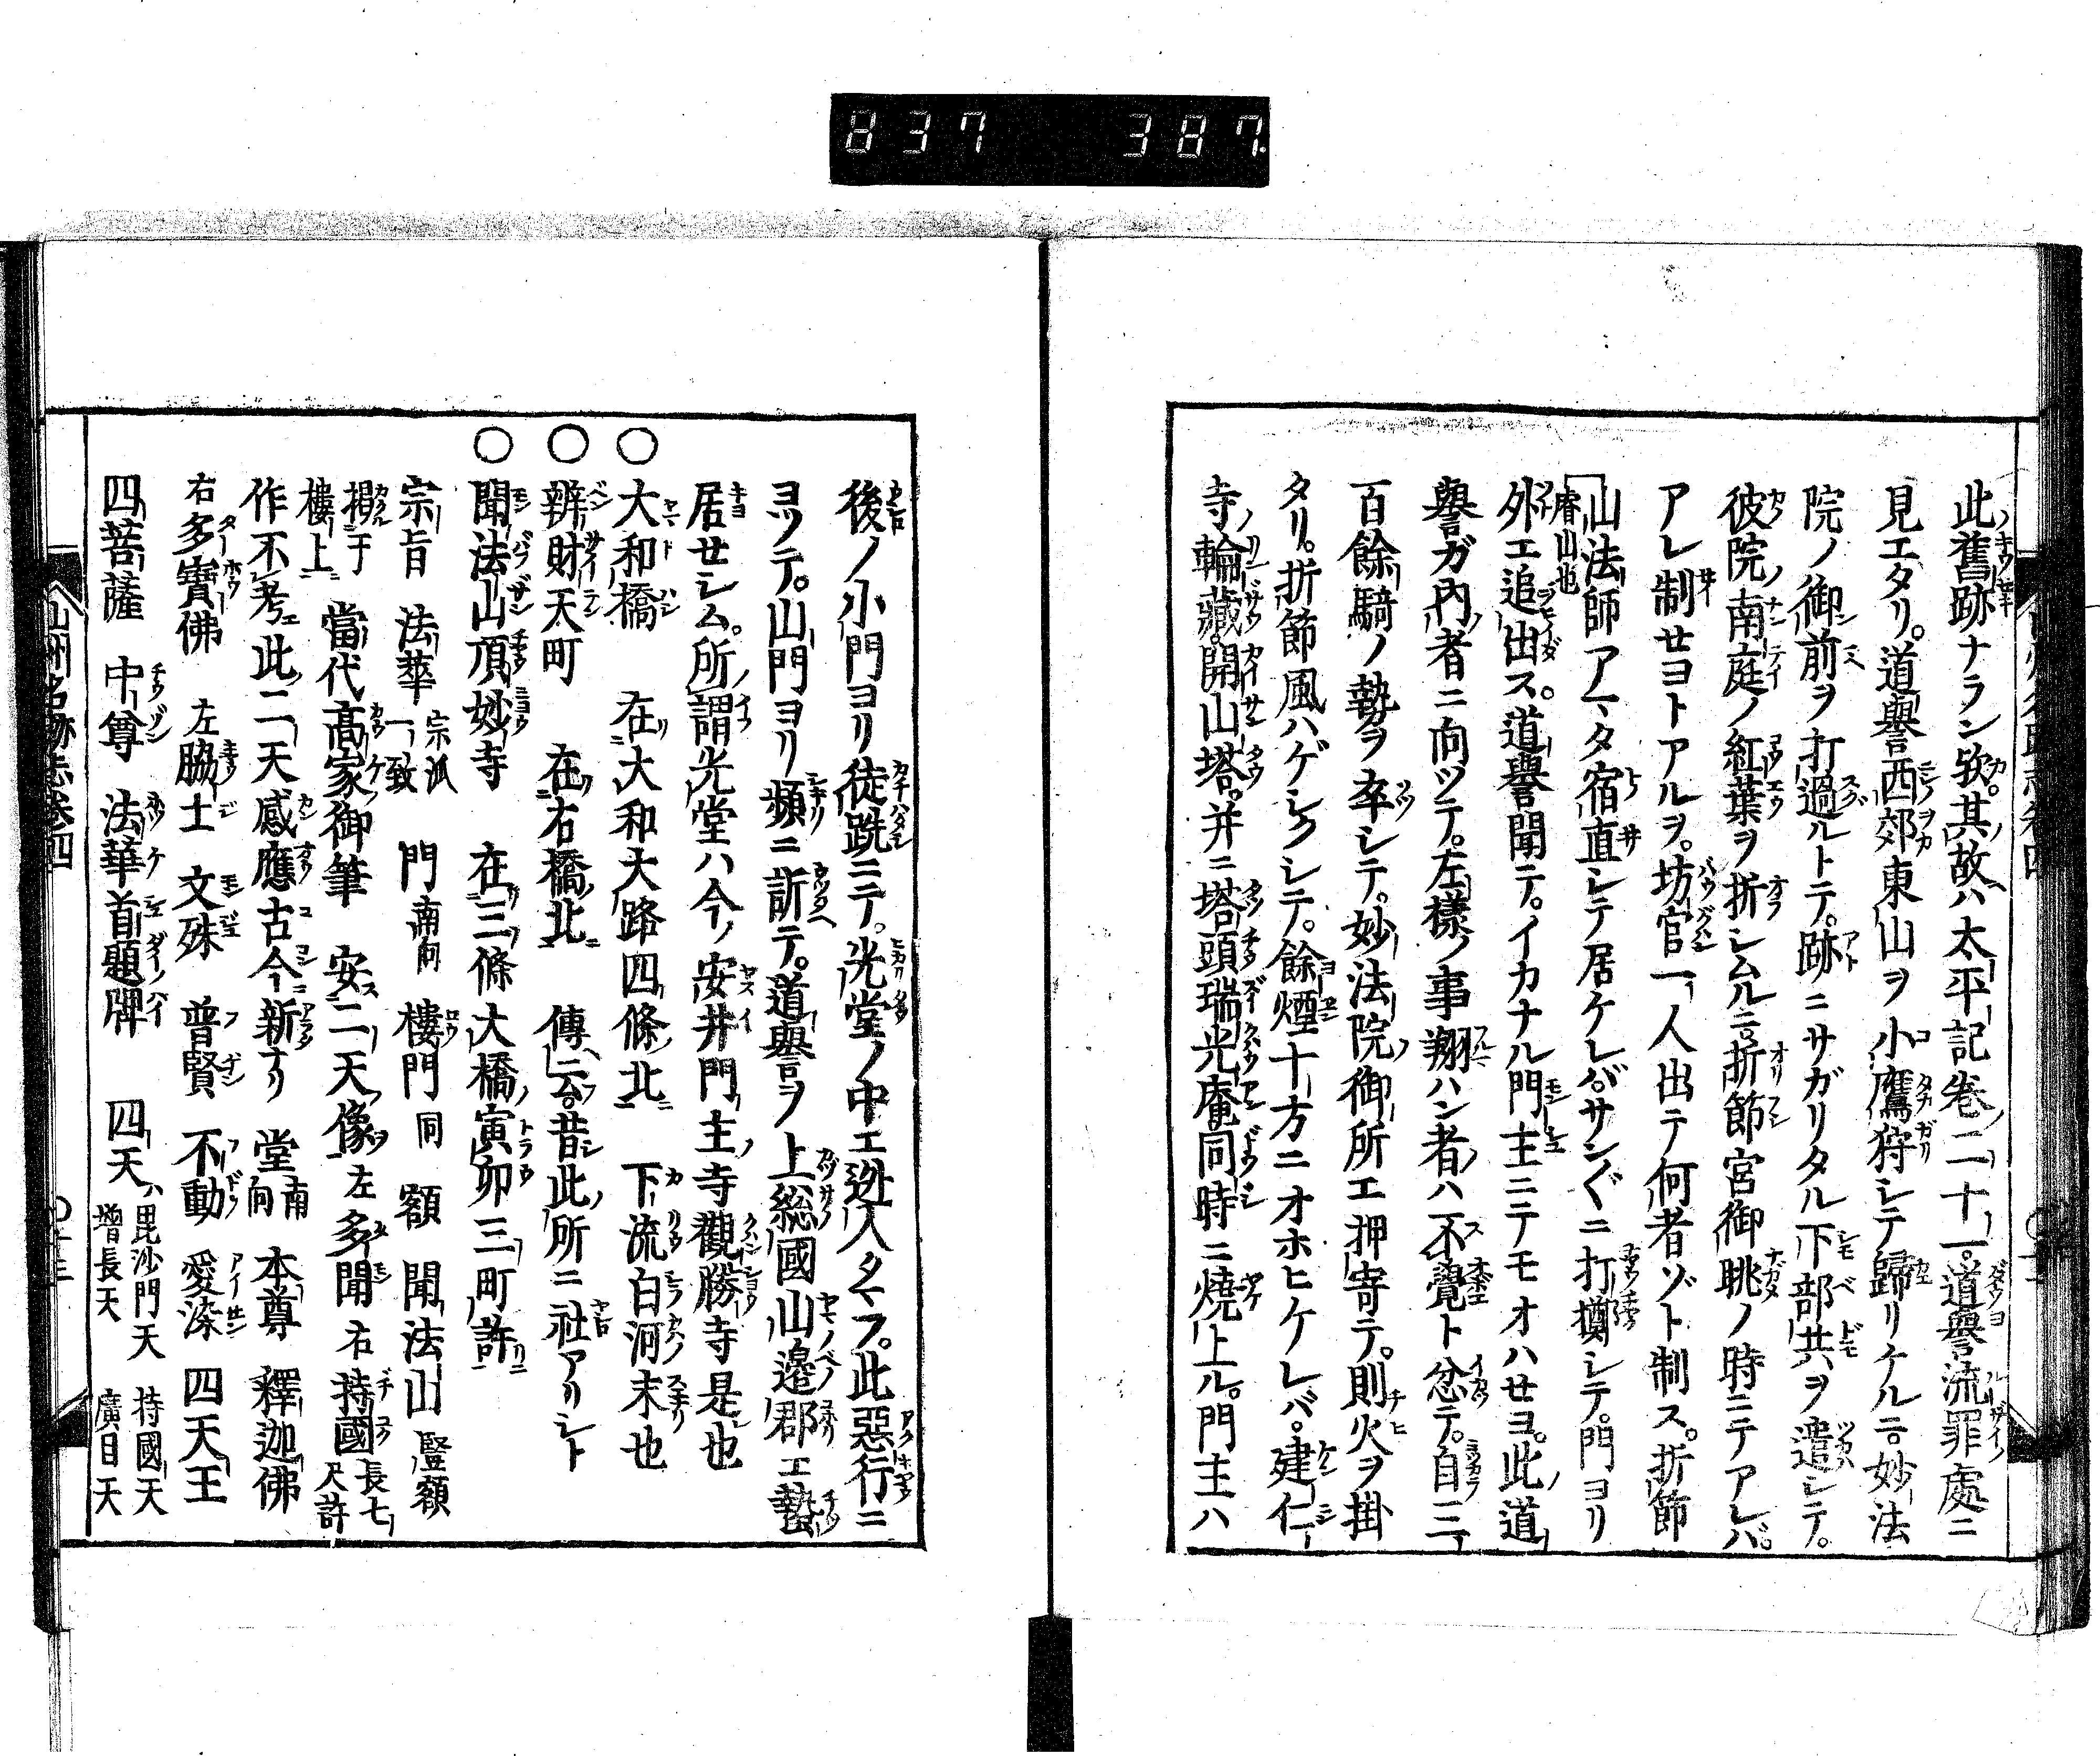 837 387
此舊跡ナラン歟。其故ハ太平記巻二十一。道譽流罪處ニ
見エタリ。道譽西郊東山ヲ小鷹狩シテ歸リケルニ。妙法
院ノ御前ヲ打過ルトテ。跡ニサガリタル下部共ヲ遣シテ。
彼院ノ南庭ノ紅葉ヲ折シムルニ。折節宮御眺ノ時ニテアレバ。
アレ制セヨトアルヲ。坊官一人出テ何者ゾト制ス。折節
山法師アマタ宿直シテ居ケレバ。サン〴〵ニ打擲シテ。門ヨリ
睿山也
外エ追出ス。道譽聞テ。イカナル門主ニテモオハセヨ。此道
譽ガ內者ニ向ツテ。左樣ノ事翔ハン者ハ不覺ト忿テ。自三
百餘騎ノ勢ヲ卒シテ。妙法院御所エ押寄テ。則火ヲ掛
タリ。折節風ハゲシクシテ。餘煙十方ニオホヒケレバ。建仁
寺ノ輪藏。開山塔。并ニ塔頭瑞光庵同時ニ燒上ル。門主ハ
後ノ小門ヨリ徒跣ニテ。光堂ノ中エ迯入タマフ。此惡行ニ
ヨツテ。山門ヨリ頻ニ訴テ。道譽ヲ上総國山邊郡エ蟄
居セシム。所謂光堂ハ今ノ安井門主ノ寺觀勝寺是也
○大和橋 在大和大路四條北 下流白河末也
○辨財天町 在右橋北 傳云。昔此所ニ社アリシト
○聞法山頂妙寺 在三條大橋寅卯三町許
宗旨 法華 宗派一致 門南向 樓門同 額 聞法山 竪額
揭于樓上 當代髙家御筆 安二天像 左多聞 右持國 長七尺許
作不考 此二天感應古今新ナリ 堂南向 本尊 釋迦佛
右多寶佛 左脇士 文殊 普賢 不動 愛染 四天王
四菩薩 中尊 法華首題牌 四天ハ毘沙門天 持國天 增長天 廣目天
山州名跡志卷四